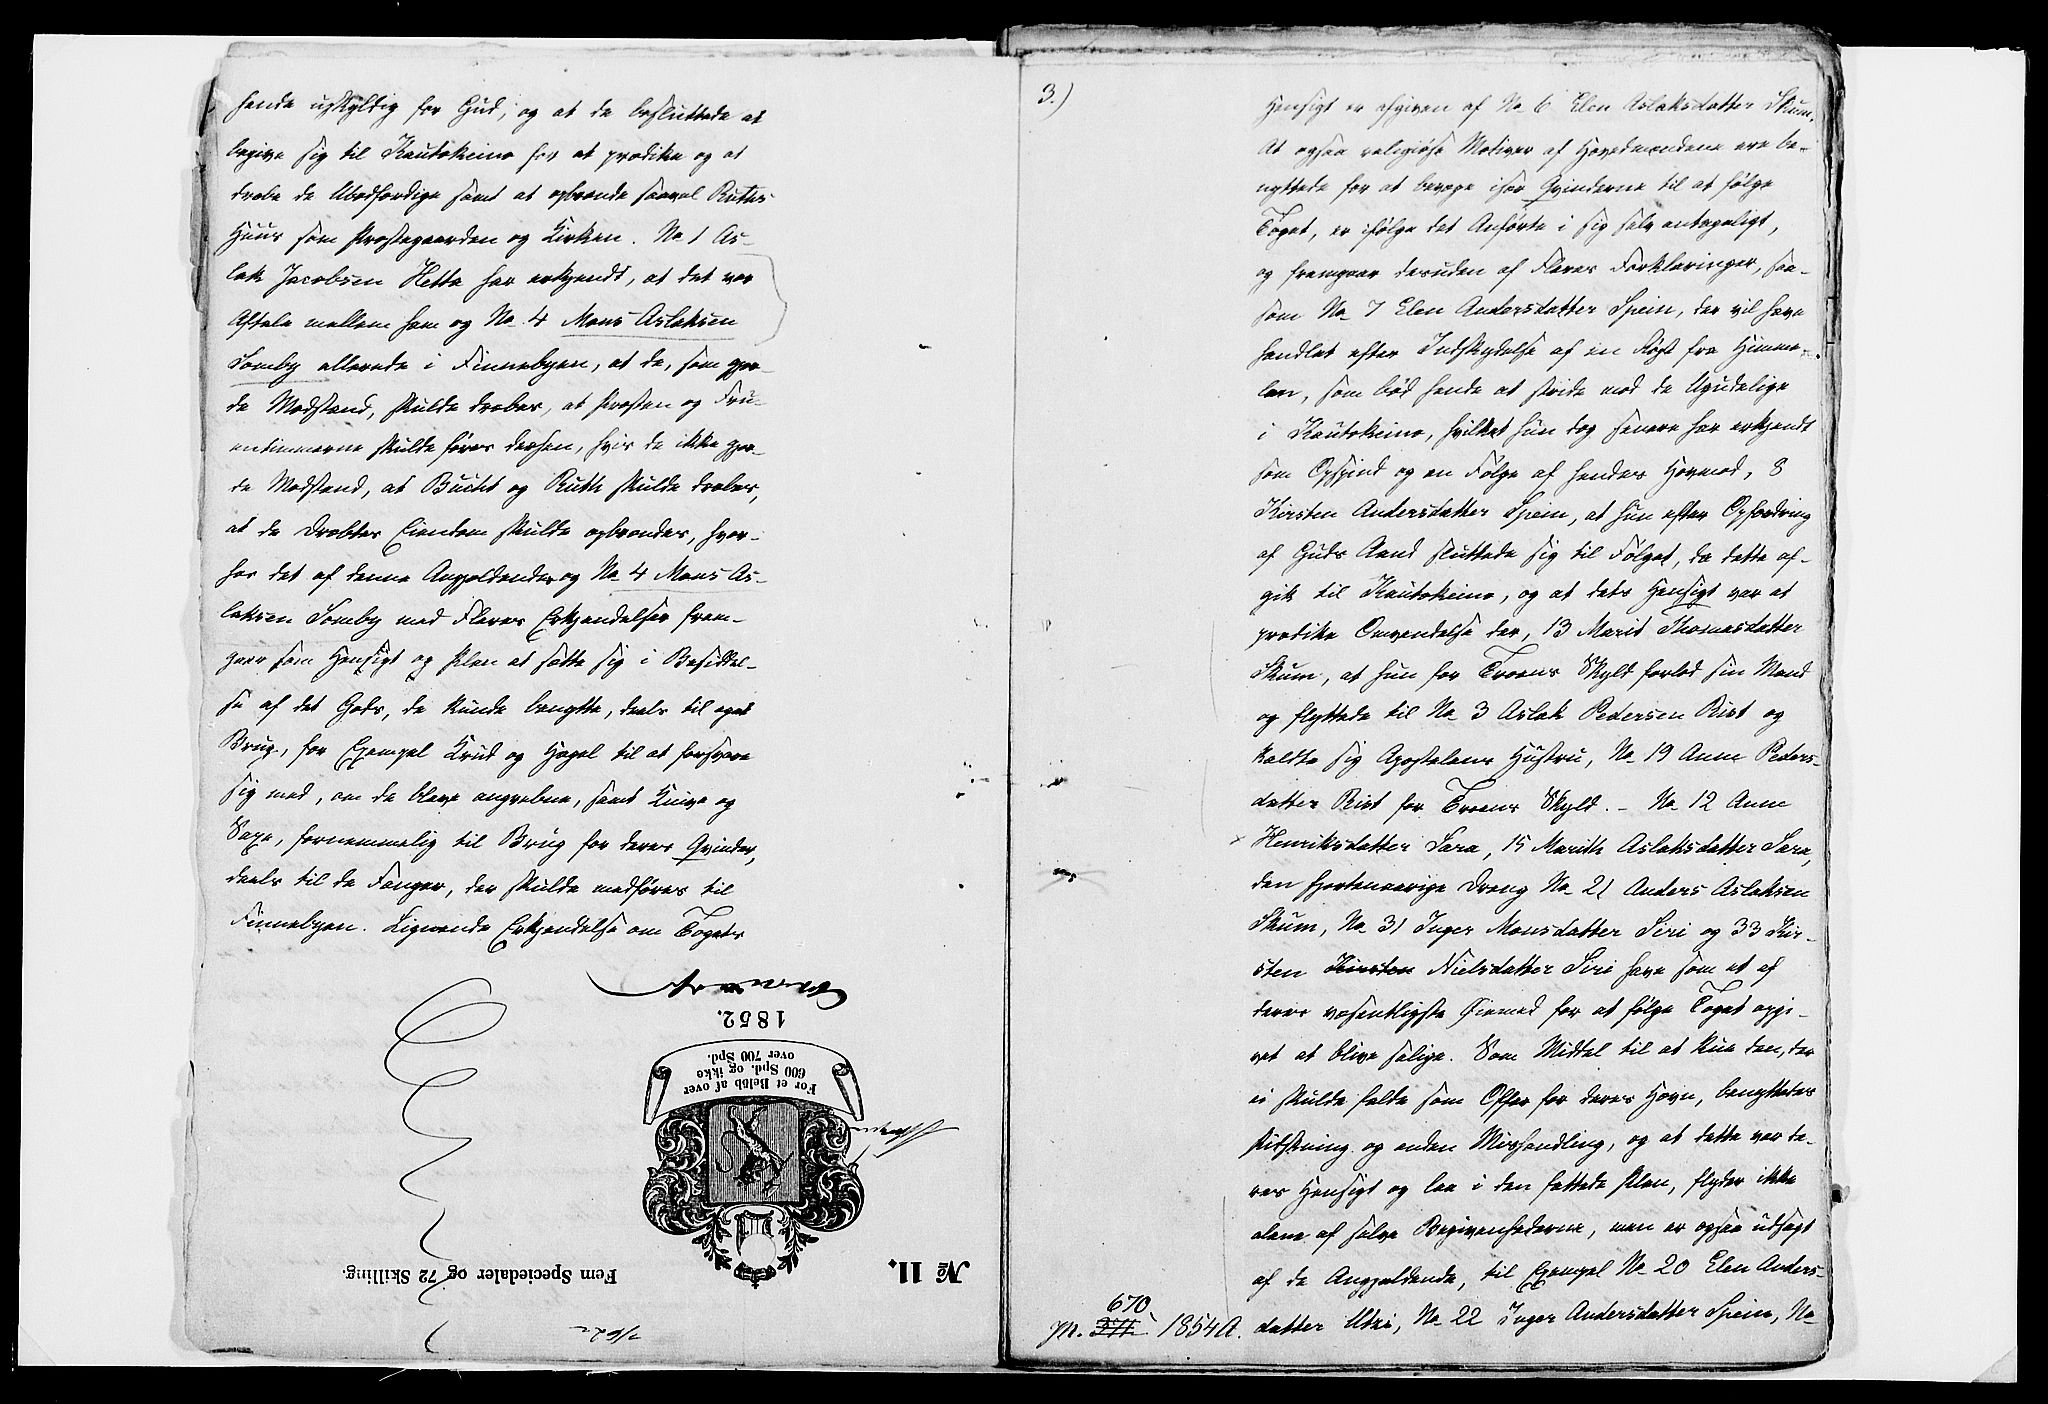 hende uskyldig for Gud, og at de besluttede at
begive sig til Kautokeino for at prædike og at
dræbe de Ubodfærdige samt at opbrænde saavel Ruths
Huus som Præstegaarden og Kirken. No 1 As-
lak Jacobsen Hetta har erkjendt, at det var
Aftale mellem ham og No 4 Mons Aslaksen
Somby allerede i Finnebyen, at de, som gjor-
de Modstand, skulde dræbes, at Præsten og Fru-
entimmerne skulde føres dersen, hvis de ikke gjor-
de Modstand, at Bucht og Ruth skulde dræbes,
at de Dræbtes Eiendom skulde opbrændes, hvor-
hos det af denne Angjældende og No 4 Mons As-
laksen Somby med Fleres Erkjendelser frem-
gaar som Hensigt og Plan at sætte sig i Besiddel-
se af det Gods, de kunde benytte, deels til eget
Brug, for Exempel Krud og Hagel til at forsvare
sig med, om de bleve angrebne, samt Knive og
Saxe, fornemmelig til Brug for deres Qvinder,
deels til de Fanger, der skulde medføres til
Finnebyen. Lignende Erkjendelse om Togets
1852.
For et Beløb af over
600 Spd. og ikke
over 700 Spd.
No 11.
Fem Speciedaler og 72 Skilling.
3.)
Hensigt er afgiven af No 6 Elen Aslaksdatter Skum.
At ogsaa religiøse Motiver af Hovedmændene ere be-
nyttede for at bevæge især Qvinderne til at følge
Toget, er ifølge det Anførte i sig selv antageligt,
og fremgaar desuden af Fleres Forklaringer, saa-
som No 7 Elen Andersdatter Spein, der vil have
handlet efter Indskydelse af en Røst fra Himme-
len, som bød hende at stride mod de Ugudelige
i Kautokeino, hvilket hun dog senere har erkjendt
som Opspind og en Følge af hendes Hovmod, 8
Kirsten Andersdatter Spein, at hun efter Opfordring
af Guds Aand sluttede sig til Følget, da dette af-
gik til Kautokeino, og at dets Hensigt var at
prædike Omvendelse der, 13 Marit Thomasdatter
Skum, at hun for Troens Skyld forlod sin Mand
og flyttede til No 3 Aslak Pedersen Rist og
kaldte sig Apostelens Hustru, No 19 Anne Peders-
datter Rist for Troens Skyld. – No 12 Anne
Henriksdatter Sara, 15 Marith Aslaksdatter Sara,
den fjortenaarige Dreng No 21 Anders Aslaksen
Skum, No 31 Inger Monsdatter Siri og 33 Kir-
sten Kirsten Nielsdatter Siri have som et af
deres væsentligste Øiemed for at følge Toget opgi-
vet at blive salige. Som Middel til at kue den, der
ei skulde falde som Offer for deres Hævn, benyttedes
Riisskning og anden Mishandling, og at dette var de-
res Hensigt og laa i den fattede Plan, flyder ikke
alene af selve Begivenhederne, men er ogsaa udsagt
af de Angjældende, til Exempel No 20 Elen Anders-
datter Utzi, No 22 Inger Andersdatter Spein, No
670
1854 A.